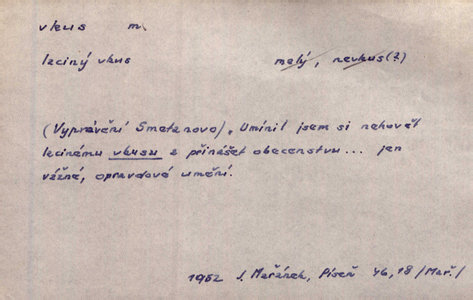 vkus m.
laciný vkus malý, nevkus(?)
(Vyprávění Smetanovo), Umínil jsem si nehovět
lacinému vkusu a přinášet obecenstvu... jen
vážné, opravdové umění.
1952 J. Mařánek, Píseň 46,18 /Mař./